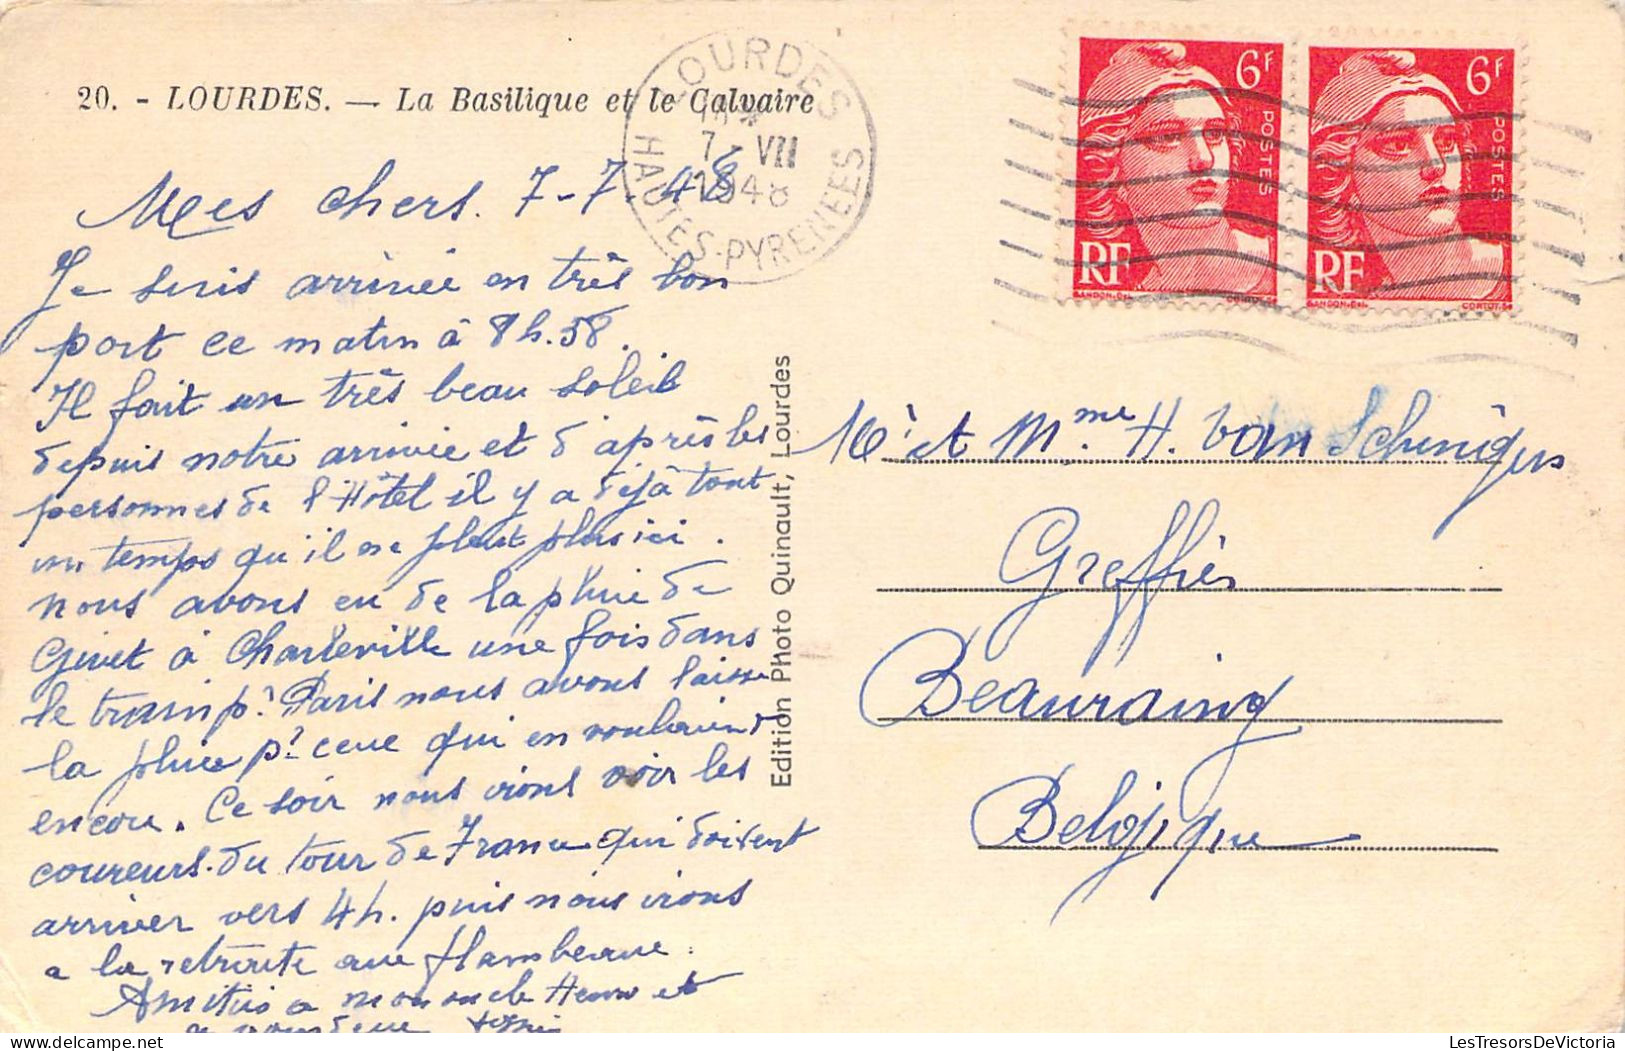 20. - LOURDES. — La Basilique et le Calvaire
LOURDES
15 *
7 - VII
1948
HAUTES-PYRENEES
6F
POSTES
RF
GANDON-DEL
CORTOT.SC
6F
POSTES
RF
GANDON-DEL
CORTOT.SC
Mes chers. 7-7-48
Je suis arrivée en très bon
port ce matin à 8h.38.
Il fait un très beau soleil
depuis notre arrivée et d'après les
personnes de l'Hôtel il y a déjà tout
un temps qu'il ne pleut plus ici.
nous avons eu de la pluie de
Givet à Charleville une fois dans
le train pr Paris nous avons laissé
la pluie pr ceux qui en voulaient
encore. Ce soir nous irons voir les
coureurs du tour de France qui doivent
arriver vers 4h. puis nous irons
a la retraite aux flambeaux.
Amitiés a mon oncle Henri et
a vous deux
Edition Photo Quinault, Lourdes
Mr et Mme H. Van
Greffier
Beauraing
Belgique
LesTresorsDeVictoria.com